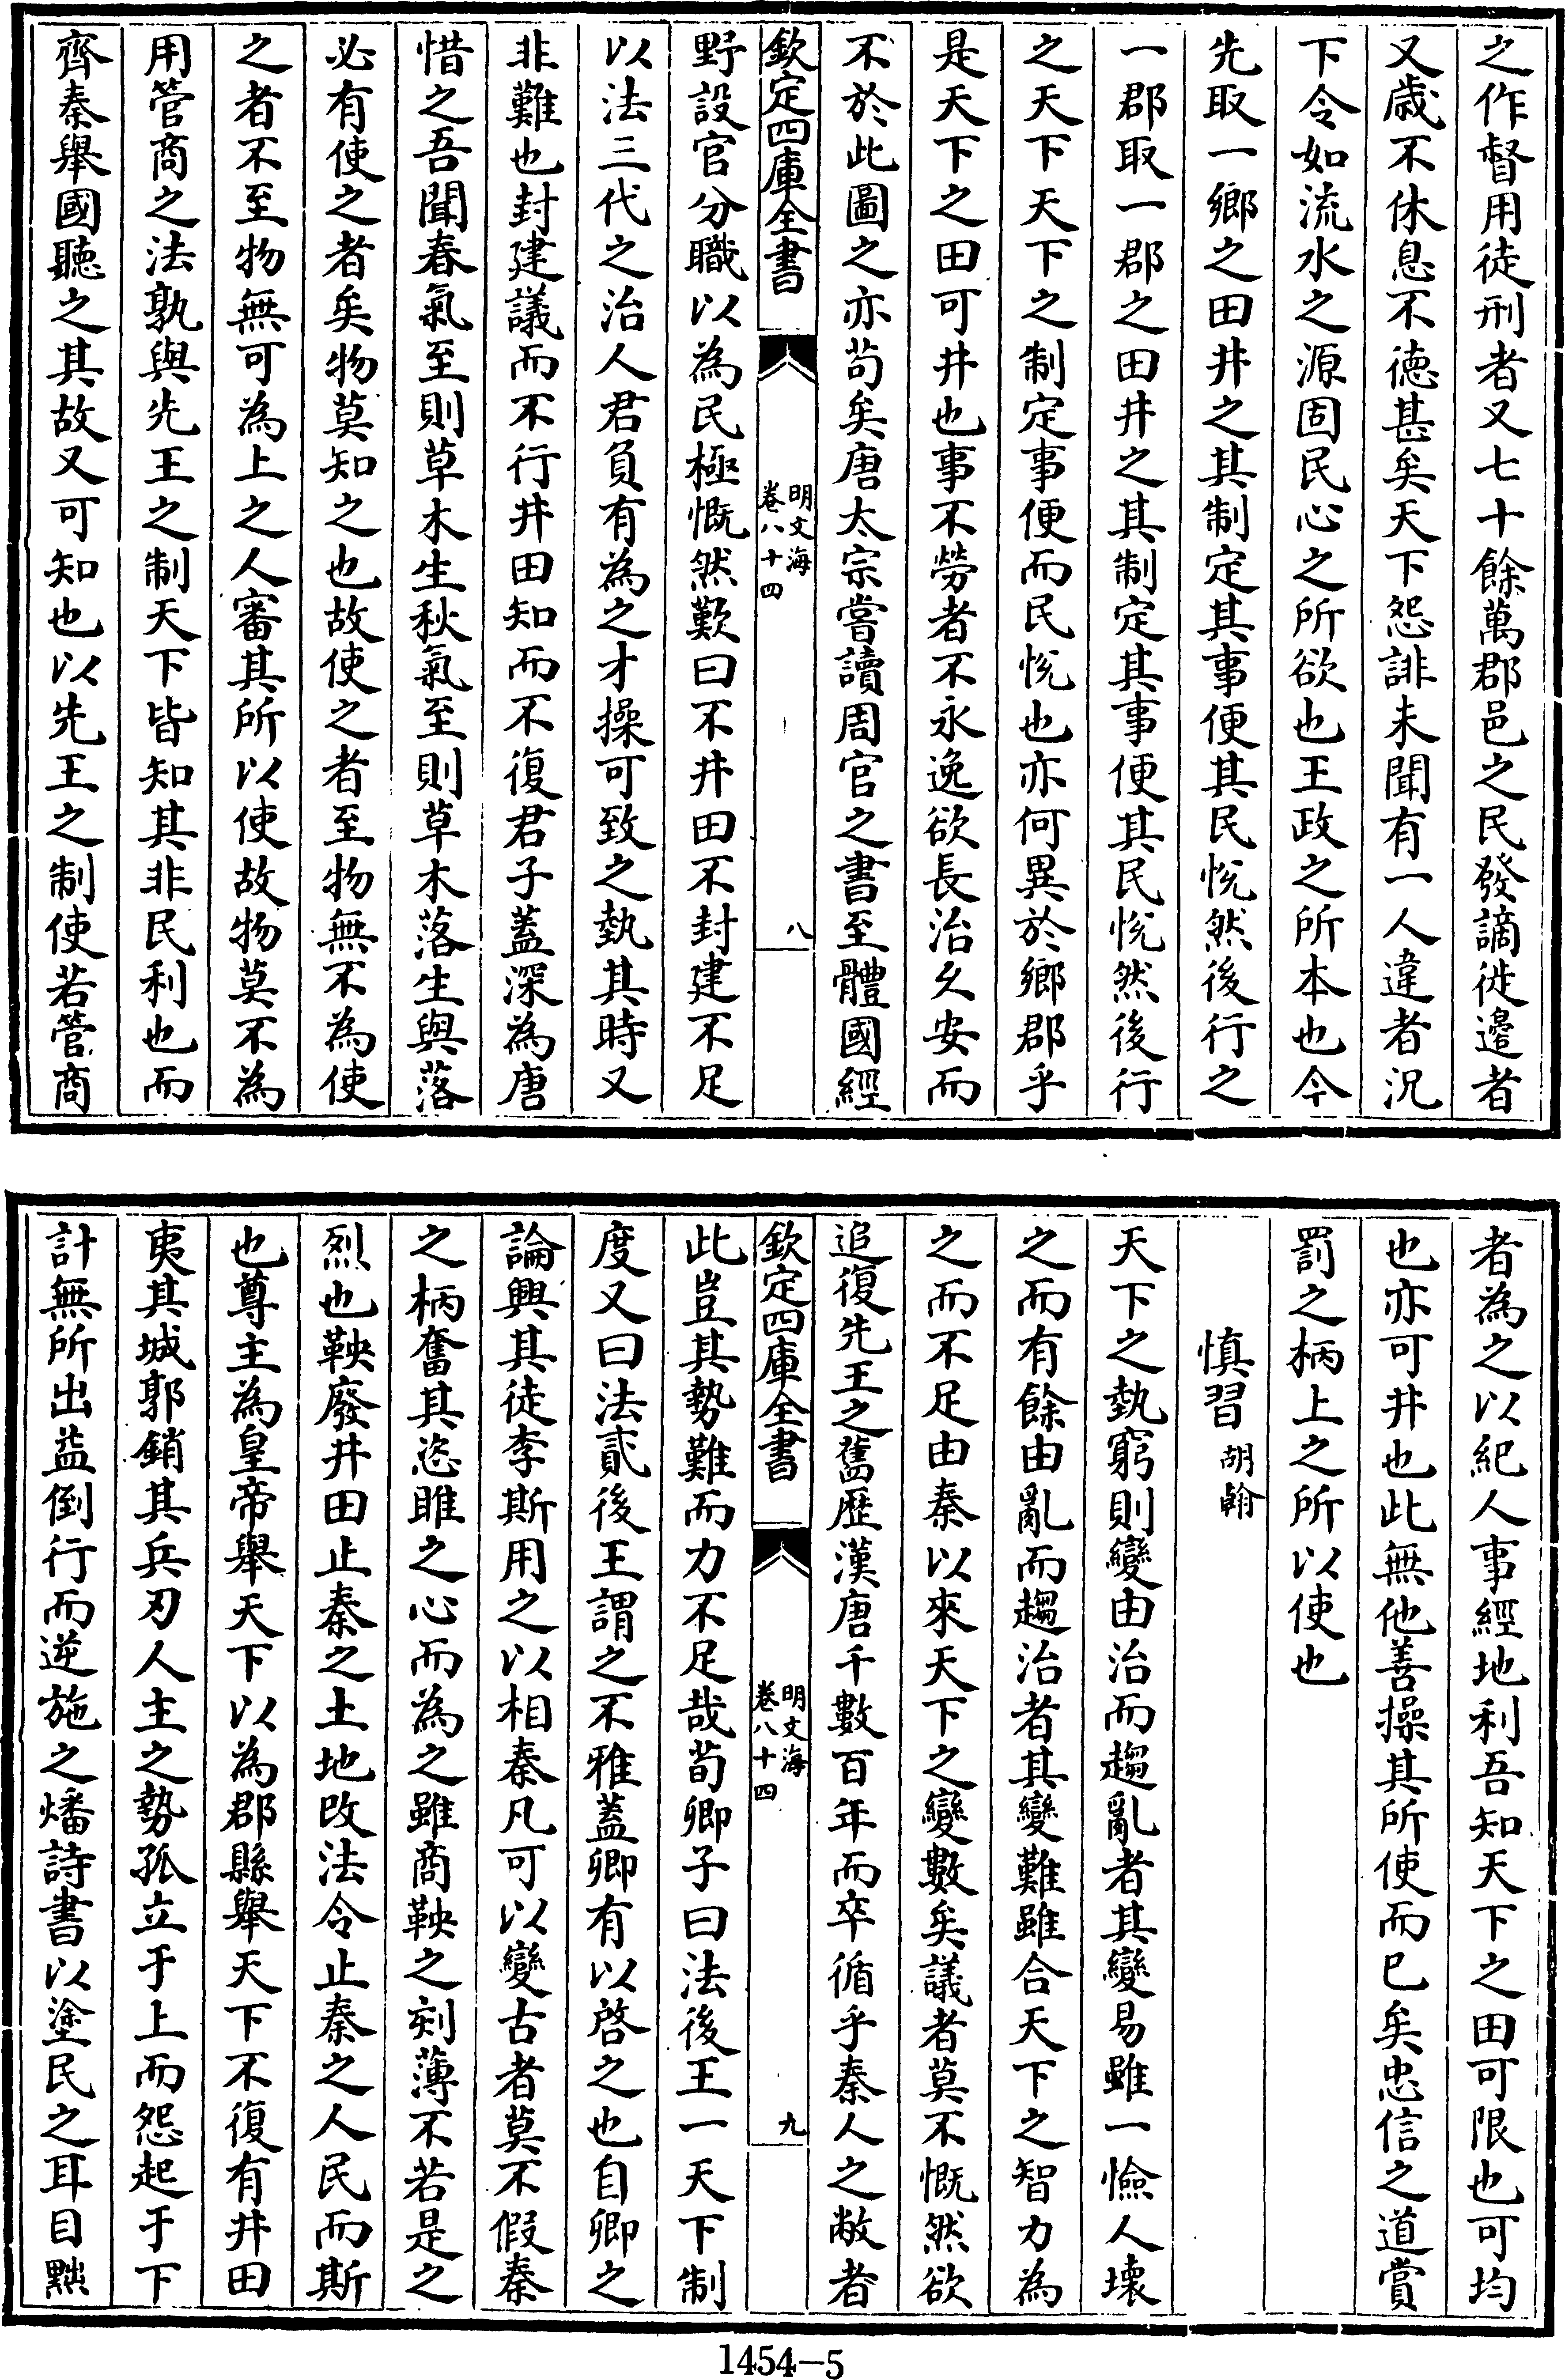 之作督用徒刑者又七十餘萬郡邑之民發謫徙邊者
又歲不休息不德甚矣天下怨誹未聞有一人違者況
下令如流水之源固民心之所欲也王政之所本也今
先取一鄉之田井之其制定其事便其民悅然後行之
一郡取一郡之田井之其制定其事便其民悅然後行
之天下天下之制定事便而民悅也亦何異於鄉郡乎
是天下之田可井也事不勞者不永逸欲長治久安而
不於此圖之亦苟矣唐太宗嘗讀周官之書至體國經
欽定四庫全書
明文海
卷八十四
八
野設官分職以為民極慨然歎曰不井田不封建不足
以法三代之治人君負有為之才操可致之埶其時又
非難也封建議而不行井田知而不復君子蓋深為唐
惜之吾聞春氣至則草木生秋氣至則草木落生與落
必有使之者矣物莫知之也故使之者至物無不為使
之者不至物無可為上之人審其所以使故物莫不為
用管商之法孰與先王之制天下皆知其非民利也而
齊秦舉國聽之其故又可知也以先王之制使若管商
者為之以紀人事經地利吾知天下之田可限也可均
也亦可井也此無他善操其所使而已矣忠信之道賞
罰之柄上之所以使也
慎習胡翰
天下之埶窮則變由治而趨亂者其變易雖一憸人壞
之而有餘由亂而趨治者其變難雖合天下之智力為
之而不足由秦以來天下之變數矣議者莫不慨然欲
追復先王之舊歷漢唐千數百年而卒循乎秦人之敝者
欽定四庫全書
明文海
卷八十四
九
此豈其勢難而力不足哉荀卿子曰法後王一天下制
度又曰法貳後王謂之不雅蓋卿有以啓之也自卿之
論興其徒李斯用之以相秦凡可以變古者莫不假秦
之柄奮其恣睢之心而為之雖商鞅之刻薄不若是之
烈也鞅廢井田止秦之土地改法令止秦之人民而斯
也尊主為皇帝舉天下以為郡縣舉天下不復有井田
夷其城郭銷其兵刃人主之勢孤立于上而怨起于下
計無所出益倒行而逆施之燔詩書以塗民之耳目黜
1454-5